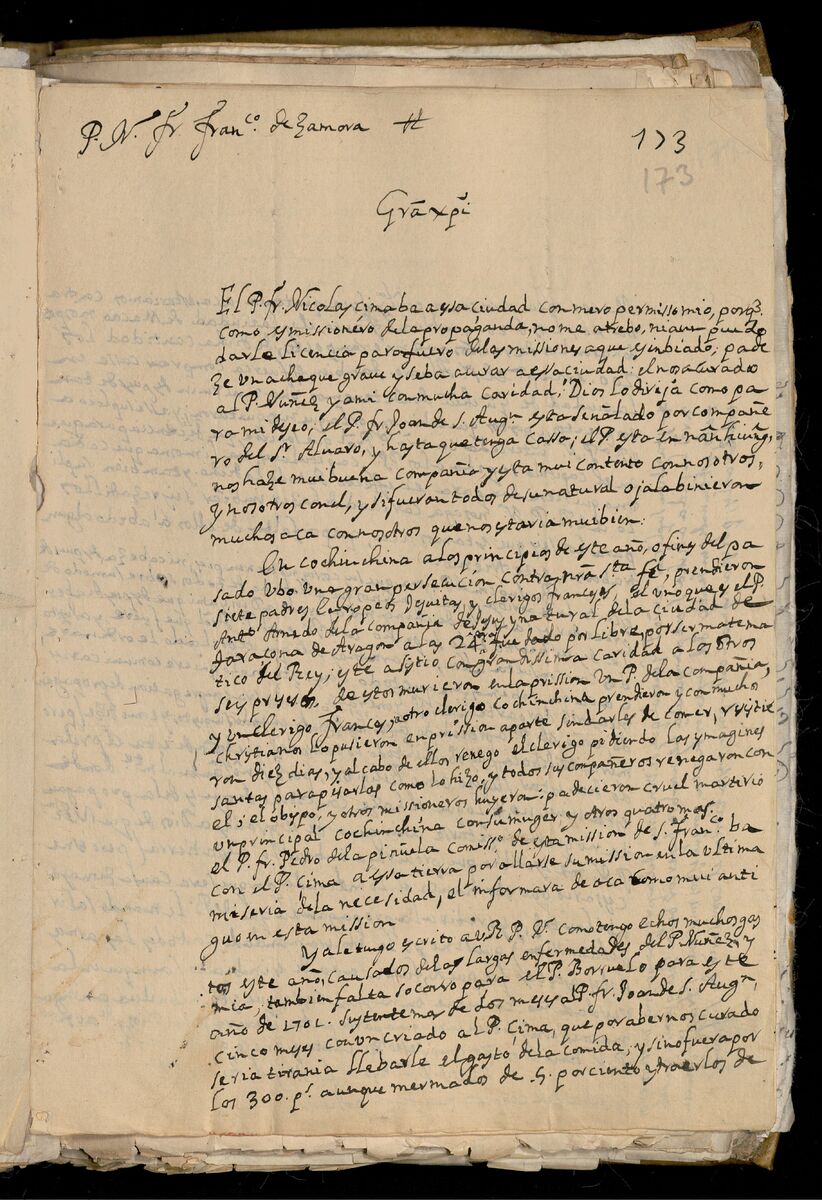 P. N. fr. franco. de Zamora #
173
173
Gra xpi
El P. fr. Nicolas cima ba a essa ciudad con mero permisso mio, porq.
como es missionero de la propaganda, no me atrebo, ni aun puedo
darle licencia para fuero de las missiones a que es inbiado; pade
ze un acheque grave y se ba a curar a essa ciudad: el nos a curado
al P. Nuñez y a mi con mucha caridad, Dios lo dirija como pa
ra mi deseo; el P. fr. Joan de S. Augn. esta señalado por compañe
ro del Sr. Alvaro, y hasta que tenga cassa, el P. esta en nan hiung,
nos haze mui buena compañia y esta mui contento con nosotros,
y nosotros con el, y si fueran todos de su natural ojala binieran
muchos aca con nosotros que nos estaria mui bien.
En cochinchina a los principios de este año, o fines del pa
sado ubo una gran persecucion contra nra. sta. fe, prendieron
siete padres Europeos Jesuitas y clerigos franceses, el uno que es el P.
Anto. Arnedo de la compañia de Jesus y natural de la ciudad de
taraçona de Aragon a las 24 fue dado por libre, por ser matema
tico del Rey; este asistio con grandissima caridad a los otros
seis presos, de estos murieron en la prission un P. de la compañia,
y un clerigo frances, a otro clerigo cochinchina prendieron y con muchos
christianos lo pusieron en prission aparte sin darles de comer, resistie
ron diez dias, y al cabo de ellos renego el clerigo pidiendo las ymagines
santas para pisarlas como lo hizo, y todos sus compañeros renegaron con
el; el obispo, y otros missioneros huyeron: padecieron cruel martirio
un principal cochinchina con su muger y otros quatro mas.
el P. fr. Pedro de la piñuela comisso. de esta mission de S. franco. ba
con el P. Cima a essa tierra por allarse su mission en la ultima
miseria de la necesidad, el informara de aca como mui anti
guo en esta mission
Ya le tengo escrito a V. R. P. N. como tengo echos muchos gas
tos este año, causados de las largas enfermedades del P. Nuñez y
mia, tambien falta socorro para el P. Borruelo para este
año de 1701. sustente mas de dos meses al P. fr. Joan de S. Augn,
cinco meses con un criado al P. Cima, que por abernos curado
seria tirania llebarle el gasto de la comida, y si no fuera por
los 300. ps. aunque mermados de 5. por ciento y traerlos de